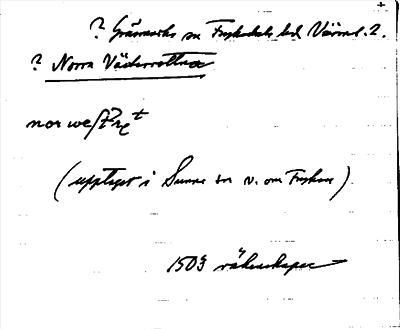 ? Gräsmarks sn Fryksdals hd Värml. l.
? Norra Väderrottna
nor westret
(upptaget i Sunne sn v. om Fryken)
1503 räkenskaper